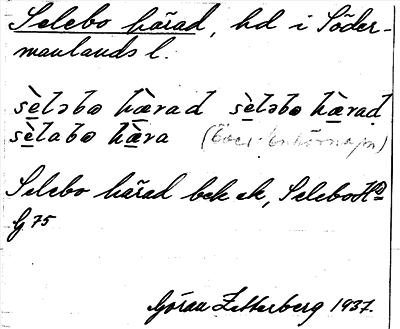 Selebo härad, hd i Söder-
manlands l.
sè̲ləbo hæ̲̀rad sè̲ləbo hæ̲̀rad
sè̲labo hæ̲̀ra
Selebo härad bek ek, Selebo Hd
G 75
Göran Zetterberg 1937.